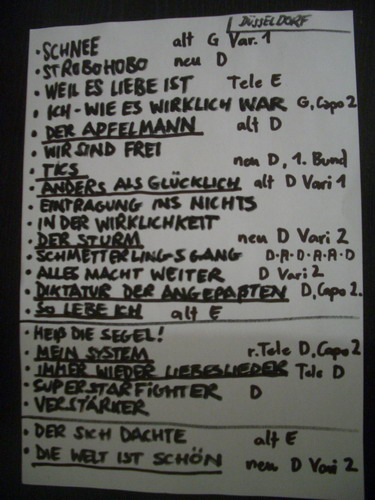 DÜSSELDORF
• SCHNEE alt G Var. 1
• STROBOHOBO neu D
• WEIL ES LIEBE IST Tele E
• ICH - WIE ES WIRKLICH WAR G, Capo 2
• DER APFELMANN alt D
• WIR SIND FREI
• TICS neu D, 1. Bund
• ANDERS ALS GLÜCKLICH alt D Vari 1
• EINTRAGUNG INS NICHTS
• IN DER WIRKLICHKEIT
• DER STURM neu D Vari 2
• SCHMETTERLINGSGANG D-A-D-A-A-D
• ALLES MACHT WEITER D Vari 2
• DIKTATUR DER ANGEPAßTEN D, Capo 2.
• SO LEBE ICH alt E
• HEIß DIE SEGEL!
• MEIN SYSTEM r. Tele D, Capo 2
• IMMER WIEDER LIEBESLIEDER Tele D
• SUPERSTARFIGHTER D
• VERSTÄRKER
• DER SICH DACHTE alt E
• DIE WELT IST SCHÖN neu D Vari 2